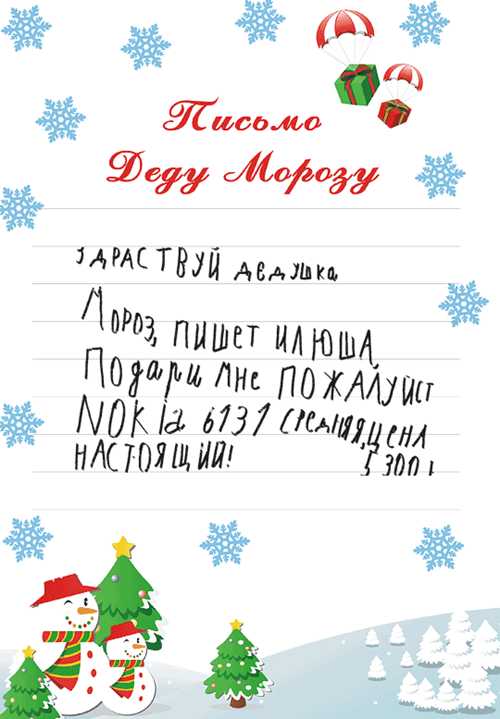 Письмо
Деду Морозу
ЗДРАСТВУЙ ДЕДУШКА
МОРОЗ, ПИШЕТ ИЛЮША
ПОдАРИ МНЕ ПОЖАЛУЙСТ
NOKIa 6131 СРЕДНЯЯ, ЦЕНА
НАСТОЯЩИЙ! 5300